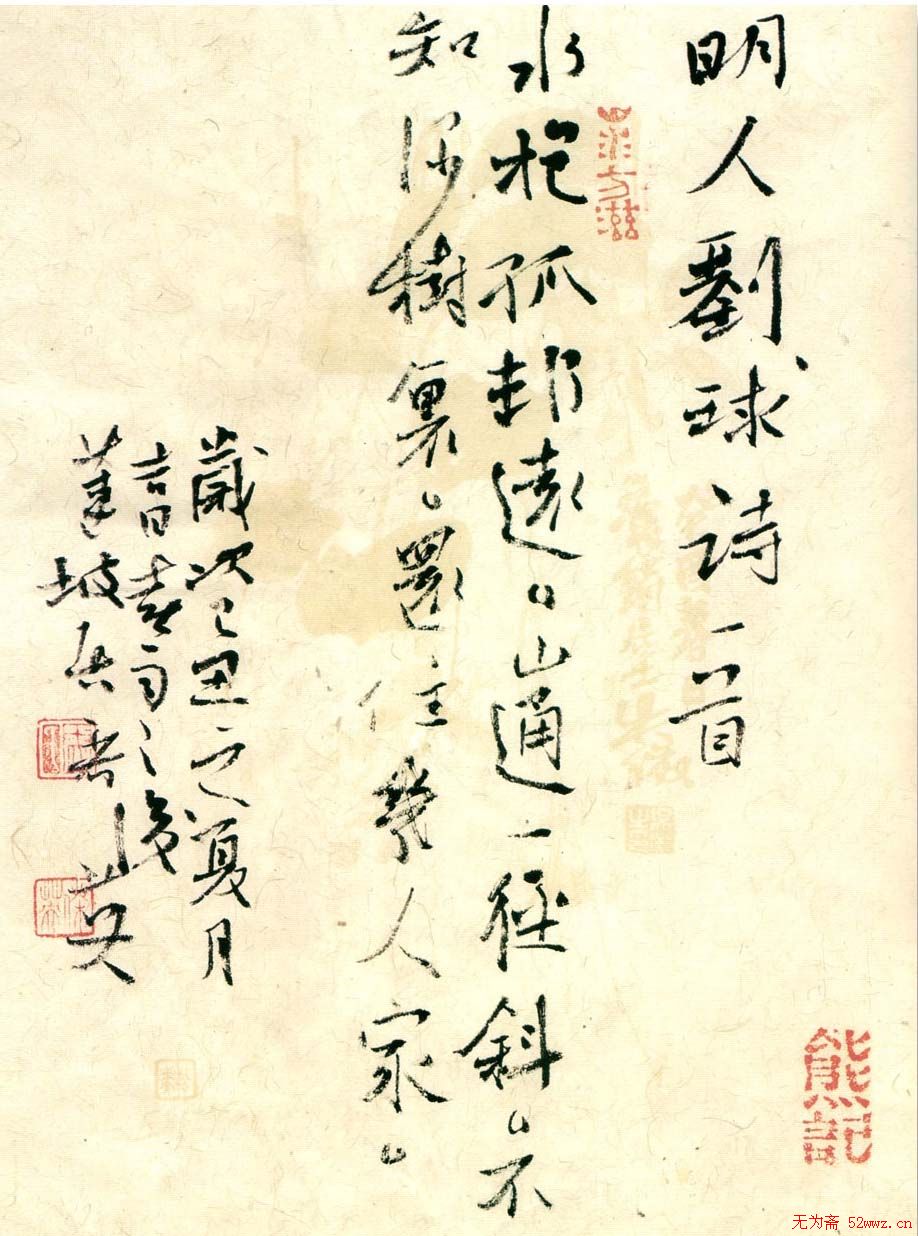 明人劉球詩一首
水抱孤邨遠。山通一徑斜。不
知深樹裏。還住幾人家。
歲次己丑之夏月
吉日喜雨之後
坡居者
熊記
无为斋 52wwz.cn